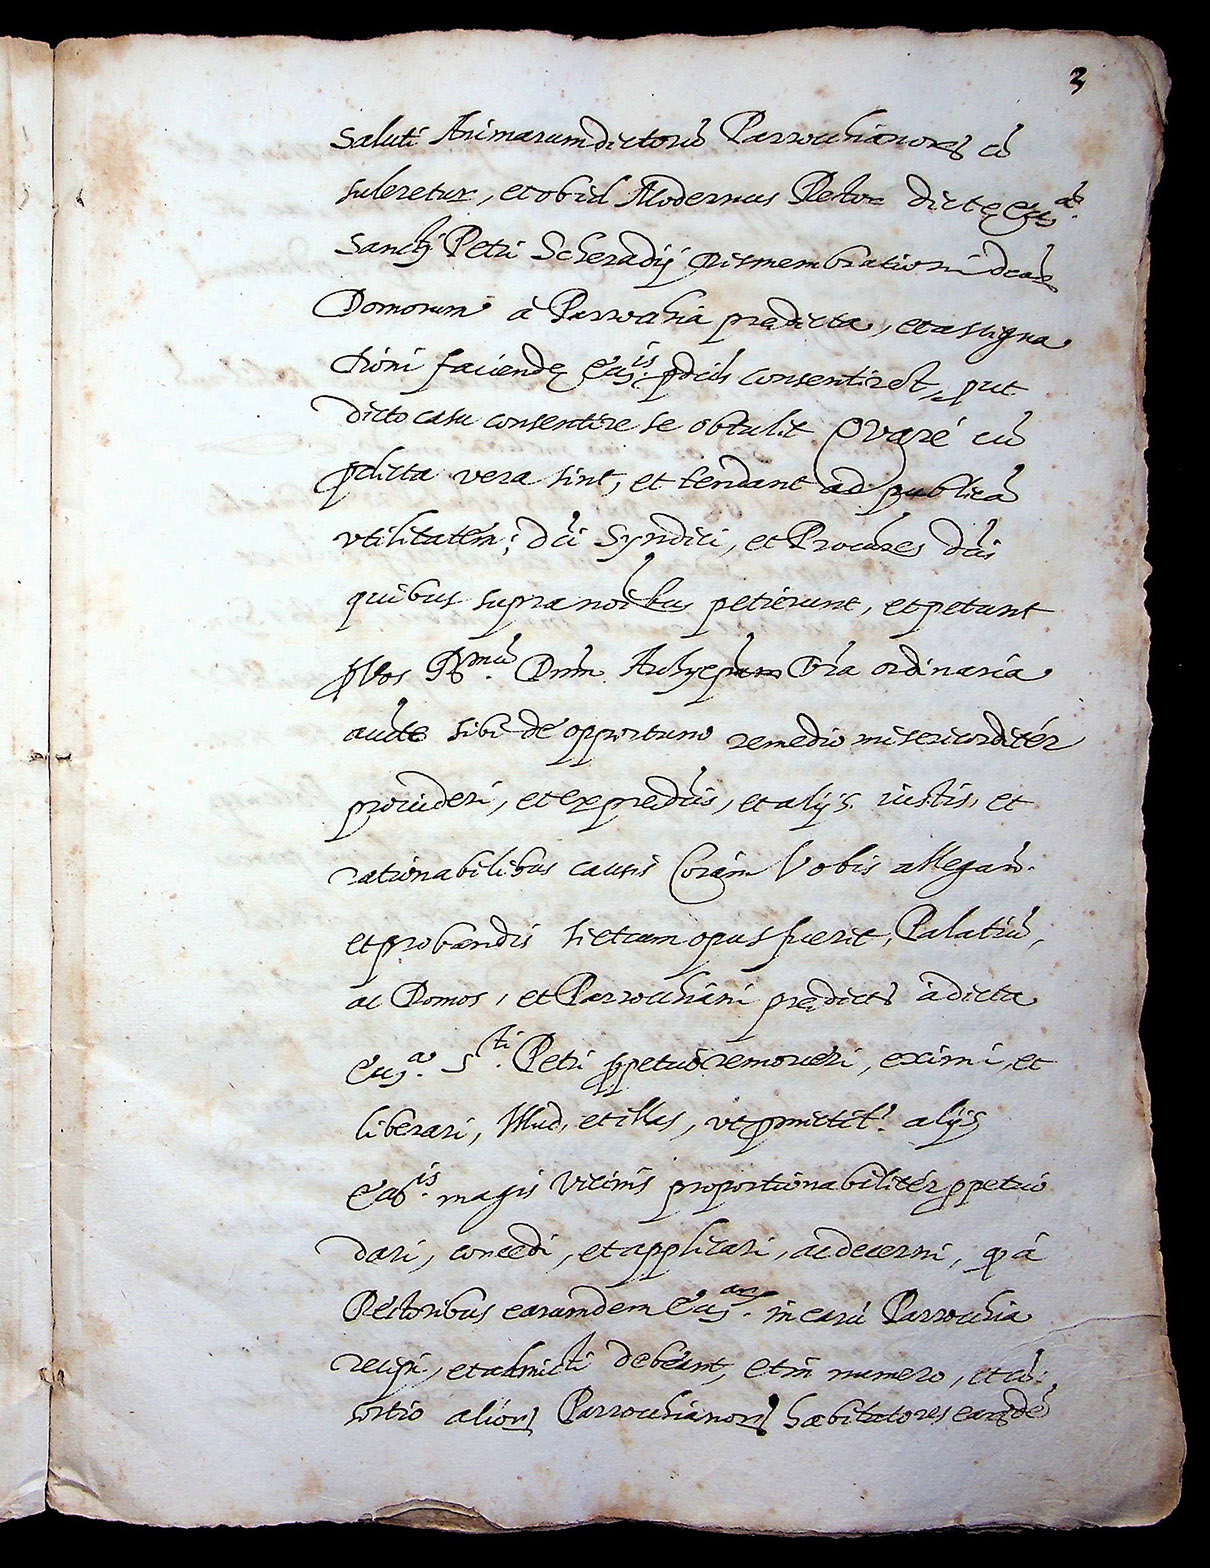 3
saluti Animarum dictorũ Parrochianorꝫ cõ
suleretur, et ob id Modernus Rector dictę Eccᵃᵉ
Sancti Petri Scheradij dismembrationi dcarꝫ
Domorum à Parrochia prędicta, et assigna
tioni faciendę Eccⁱˢ. p̃dcis consentiret, put
dicto casu consentire se obtulit Quare cũ
p̃dicta vera sint, et tendant ad publicã
vtilitatem; dci Syndici, et Procures dcis
quibus supra noibus petierunt, et petunt
p Vos Rᵐᵘ. Dnm Archiepum Vra ordinaria
aucte sibi de opportuno remedio misericorditér
prouideri, et ex predcis, et alijs iustis, et
rationabilibus causis Coram Vobis allegan.
et probandis si etiam opus fuerit, Palatiũ,
ac Domos, et Parrochiani prędictos à dicta
Eccᵃ. Sᵗⁱ. Petri ppetuo remoueri, eximi, et
liberari, Illud, et illas, vt pmictit.ʳ alijs
Eccⁱˢ. magis vicinis proportionabilitér ppetuo
dari, concedi, et applicari, ac decerni, qꝫ à
Rectoribus earumdem Eccᵃʳ. in earũ Parrochia
recipi, et admicti debeant, et in numero, et cõ:
sortio aliorꝫ Parrochianorꝫ habitatores earũdẽ